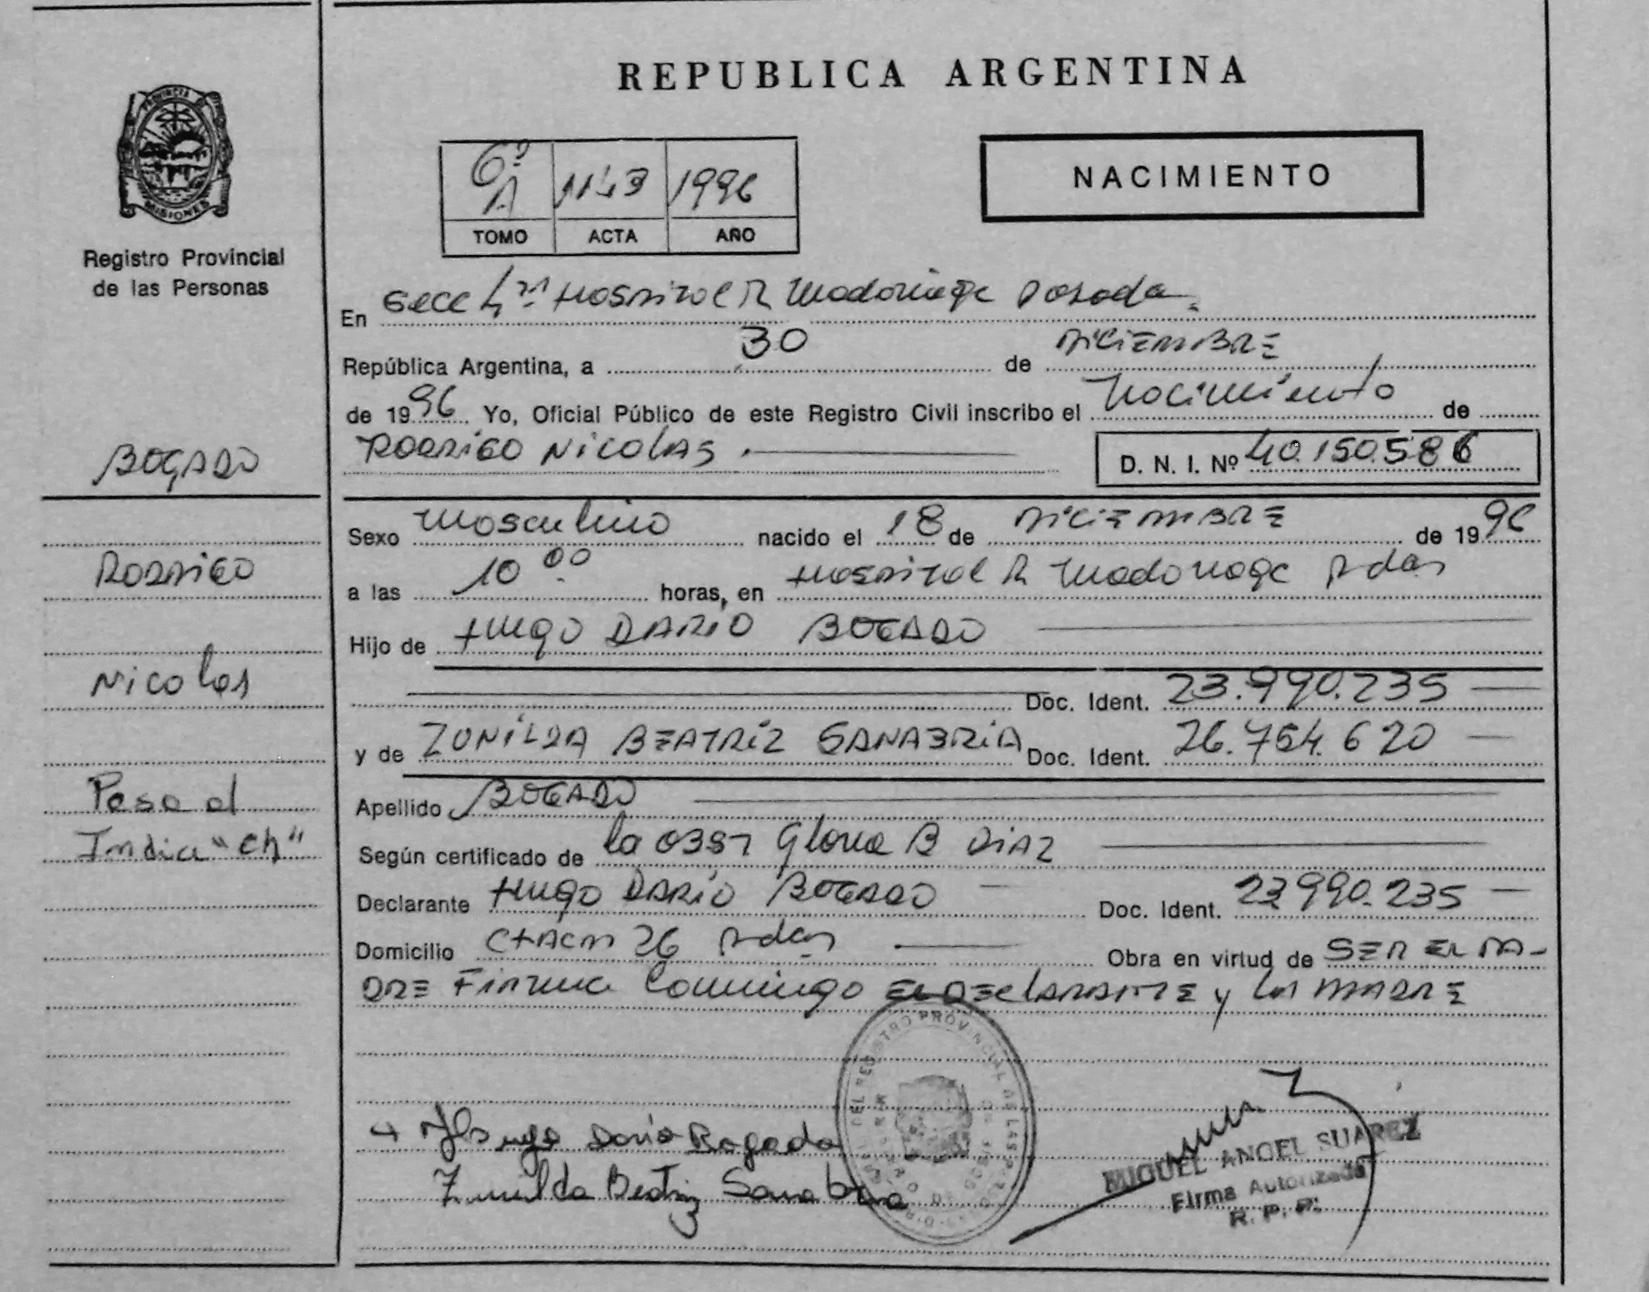 REPUBLICA ARGENTINA
PROVINCIA DE
MISIONES
Registro Provincial
de las Personas
6º A 1143 1996
TOMO ACTA AÑO
NACIMIENTO
En Secc 4ª Hospital R Madariaga Posadas
República Argentina, a 30 de DICIEMBRE
de 1996 Yo, Oficial Público de este Registro Civil inscribo el Nacimiento de
RODRIGO NICOLAS D. N. I. Nº 40.150.586
BOGADO
Rodrigo
Nicolas
Pasa al
Indice "Ch"
Sexo Masculino nacido el 18 de DICIEMBRE de 1996
a las 10 00 horas, en Hospital R Madariaga Pdas
Hijo de HUGO DARIO BOGADO
Doc. Ident. 23.990.235
y de ZUNILDA BEATRIZ SANABRIA Doc. Ident. 26.754.620
Apellido BOGADO
Según certificado de la Gloria B DIAZ
Declarante HUGO DARIO BOGADO Doc. Ident. 23990.235
Domicilio 26 Pdas Obra en virtud de SER EL PA-
DRE Firma Conmigo EL DECLARANTE y LA MADRE
Hugo Dario Bogado
Zunilda Beatriz Sanabria
DEL REGISTRO PROVINCIAL DE LAS
MIGUEL ANGEL SUAREZ
Firma Autorizada
R. P. P.